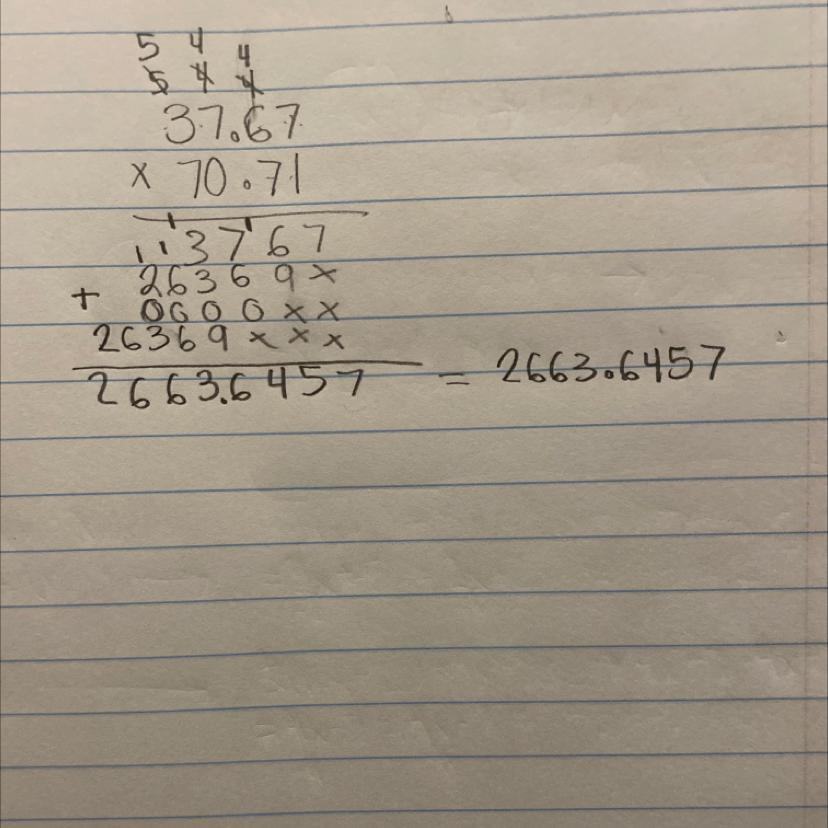 5 4 4
5 4 4
37.67
x 70.71
3767
1 1
26369x
+ 0000xx
26369xxx
2663.6457 = 2663.6457